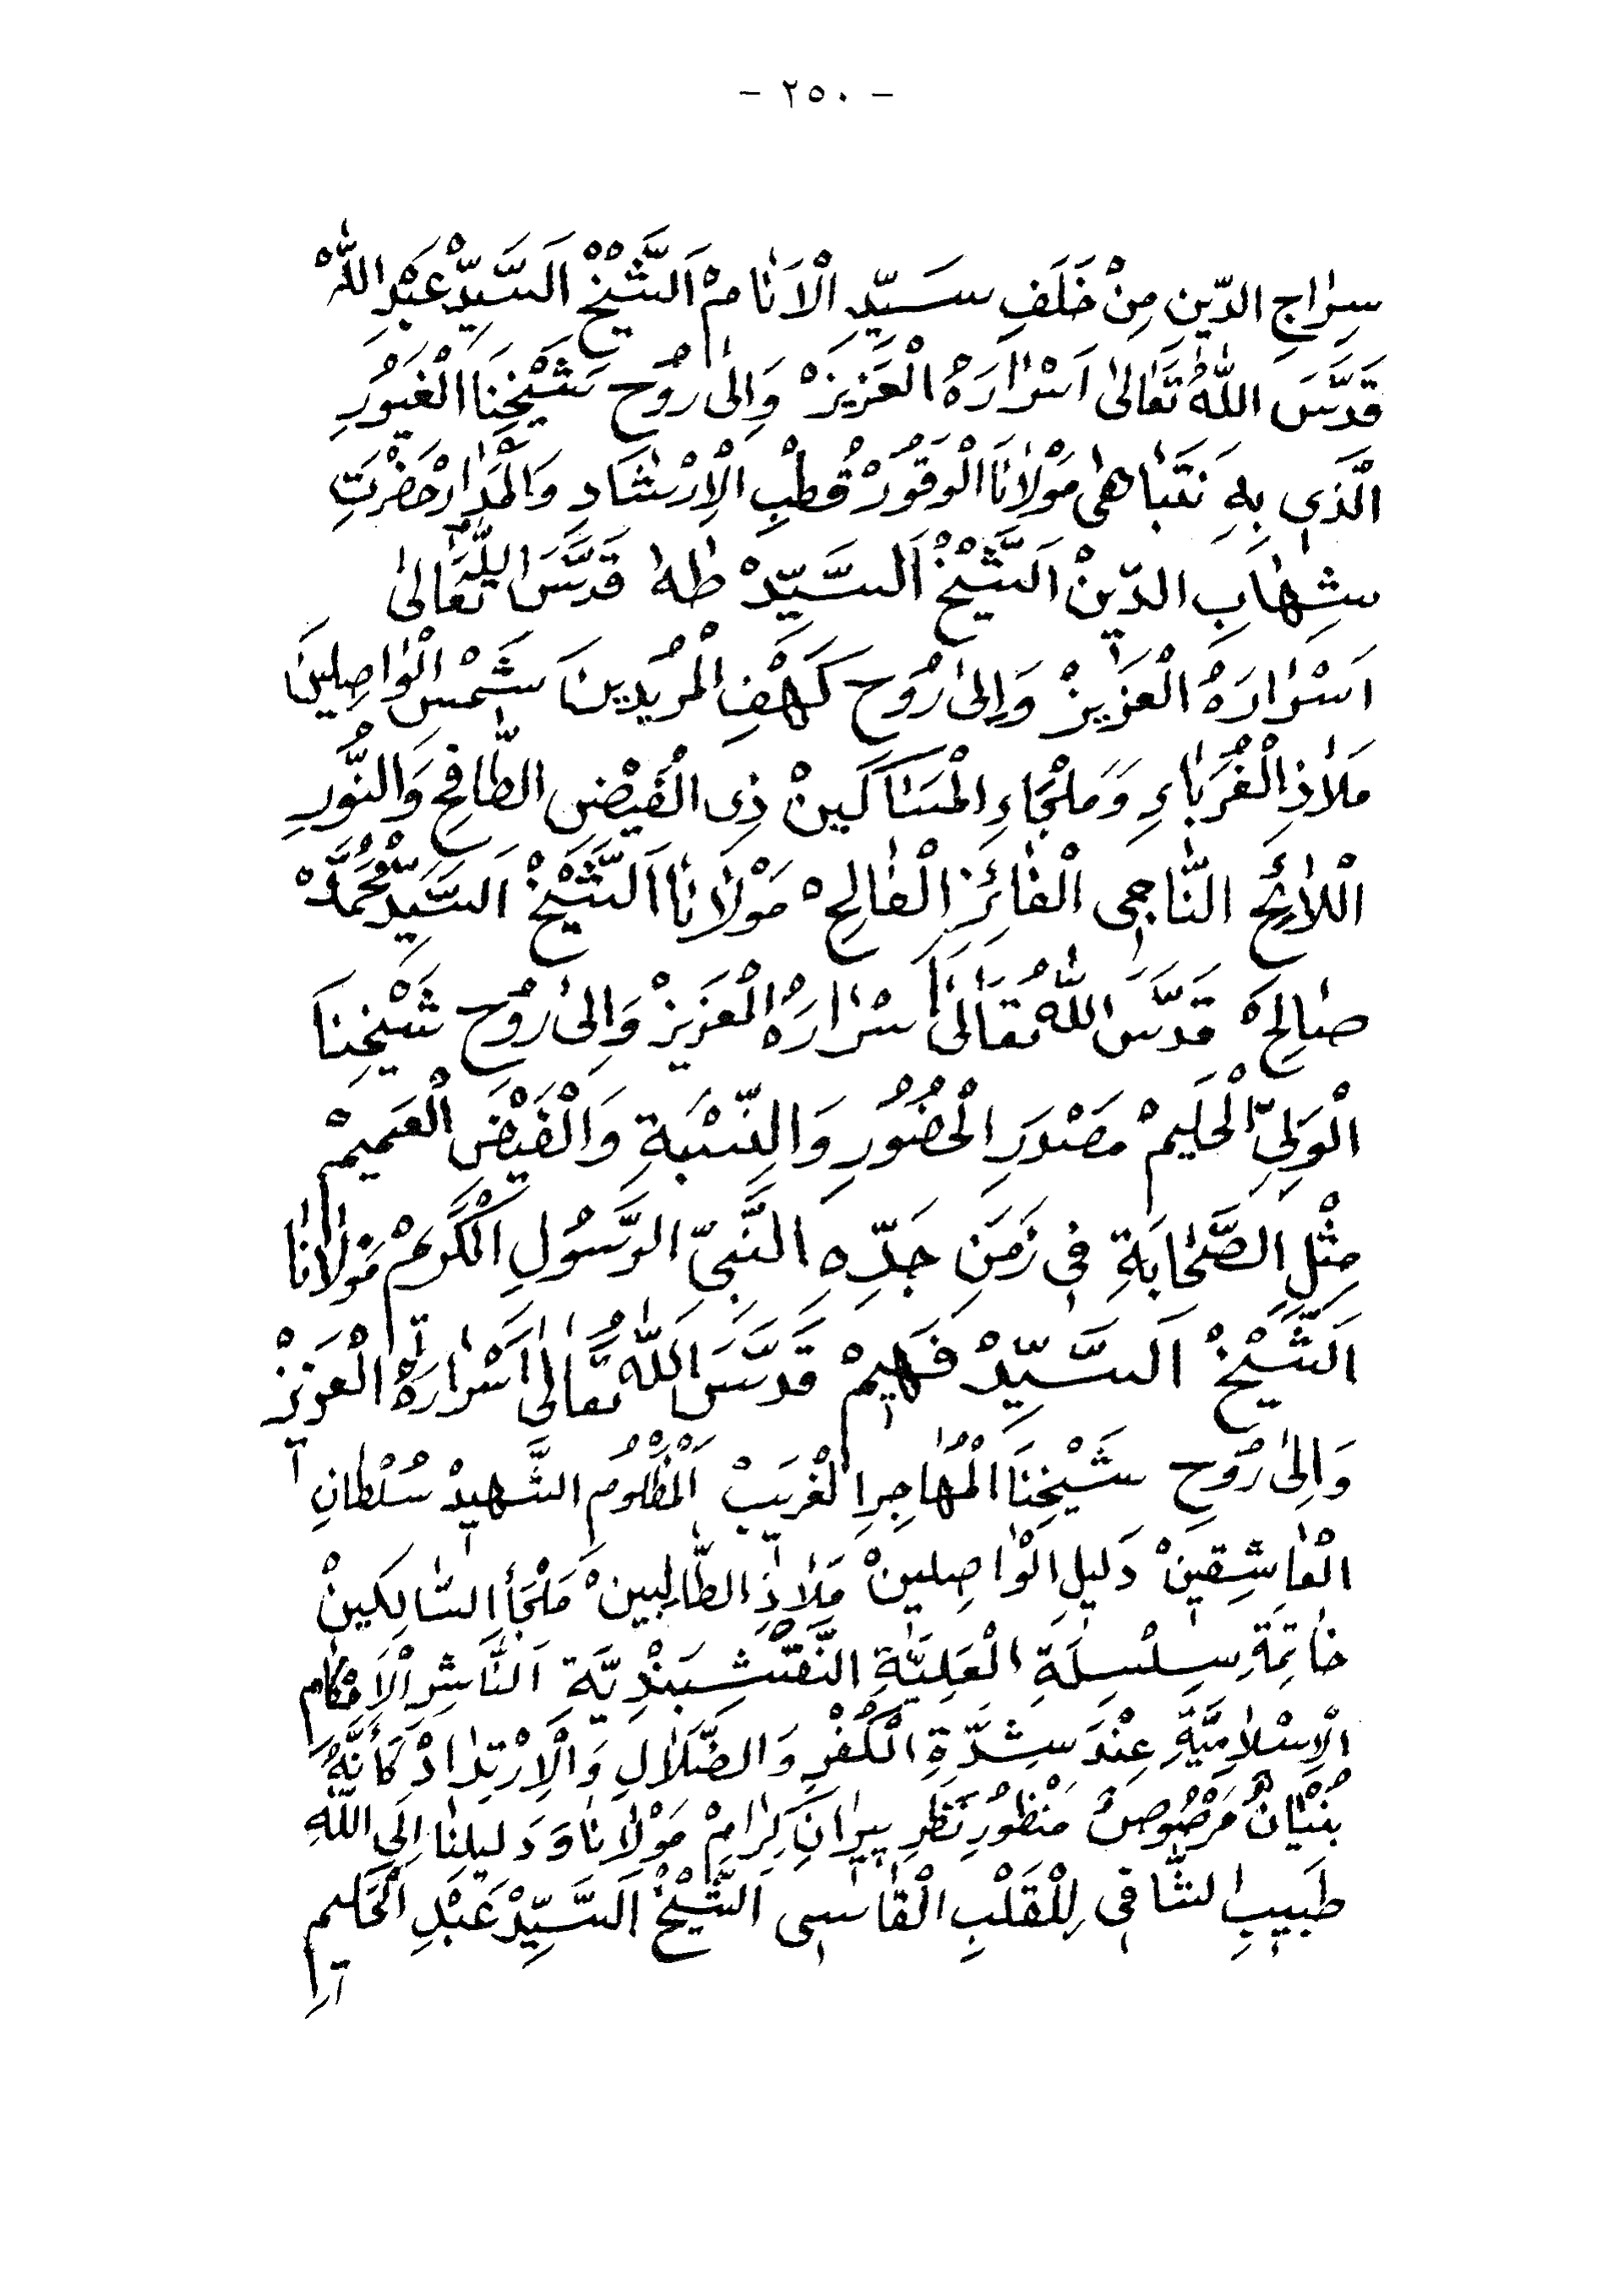 - ٢٥٠ -
سِرَاجِ الدّينِ مِنْ خَلَفِ سَيِّدِ الْاَنَامْ اَلشَّيْخْ اَلسَّيِّدْ عَبْدِ اللّٰهْ
قَدَّسَ اللّٰهُ تَعَالىٰ اَسْرَارَهُ الْعَزِيزْ وَاِلىٰ رُوحِ شَيْخِنَا الْغَيُورِ
الَّذِى بِهِ نَتَبَاهىٰ مَوْلَانَا الْوَقُورْ قُطْبِ الْاِرْشَادِ وَالْمَدَارْ حَضْرَتِ
شِهَابِ الدّينْ اَلشَّيْخْ اَلسَّيِّدْ طٰهٰ قَدَّسَ اللّٰهُ تَعَالىٰ
اَسْرَارَهُ الْعَزِيزْ وَاِلىٰ رُوحِ كَهْفِ الْمُرِيدِينَ شَمْسِ الْوَاصِلِينَ
مَلَاذِ الْغُرَبَاءِ وَمَلْجَاءِ الْمَسَاكَينْ ذِى الْفَيْضِ الطَّافِحِ وَالنُّورِ
اْللَائِحِ النَّاجِى الْفَائِزِ الْفَالِحْ مَوْلَانَا اَلشَّيْخْ اَلسَّيِّدْ مُحَمَّدْ
صَالِحْ قَدَّسَ اللّٰهُ تَعَالىٰ اَسْرَارَهُ الْعَزِيزْ وَاِلىٰ رُوحِ شَيْخِنَا
الْوَلِىِّ الْحَلِيمْ مَصْدَرِ الْحُضُورِ وَالنِّسْبَةِ وَالْفَيْضِ الْعَمِيمْ
مِثْلِ الصَّحَابَةِ فِى زَمَنِ جَدِّهِ النَّبِىِّ الرَّسُولِ الْكَرِيمْ مَوْلَانَا
اَلشَّيْخْ اَلسَّيِّدْ فَهِيمْ قَدَّسَ اللّٰهُ تَعَالىٰ اَسْرَارَهُ الْعَزِيزْ
وَاِلىٰ رُوحِ شَيْخِنَا الْمُهَاجِرِ الْغَرِيبْ اَلْمَظْلُومِ الشَّهِيدْ سُلْطَانِ
الْعَاشِقِينْ دَلِيلِ الْوَاصِلِينْ مَلَاذِ الطَّالِبِينْ مَلْجَأِ السَّالِكِينْ
خَاتِمَةِ سِلْسِلَةِ الْعَلِيَّةِ النَّقْشِبَنْدِيَّةِ اَلنَّاشِرِ الْاَحْكَامِ
الْاِسْلَامِيَّةِ عِنْدَ شِدَّةِ الْكُفْرِ وَالضَّلَالِ وَالْاِرْتِدَادْ كَأَنَّهُ
بُنْيَانٌ مَرْصُوصٌ مَنْظُورُ نَظَرِ پِيرَانِ كِرَامْ مَوْلَانَا وَدَلِيلِنَا اِلَى اللّٰهِ
طَبِيبِ الشَّافِى لِلْقَلْبِ الْقَاسِى اَلشَّيْخْ اَلسَّيِّدْ عَبْدِ الْحَكِيمِ